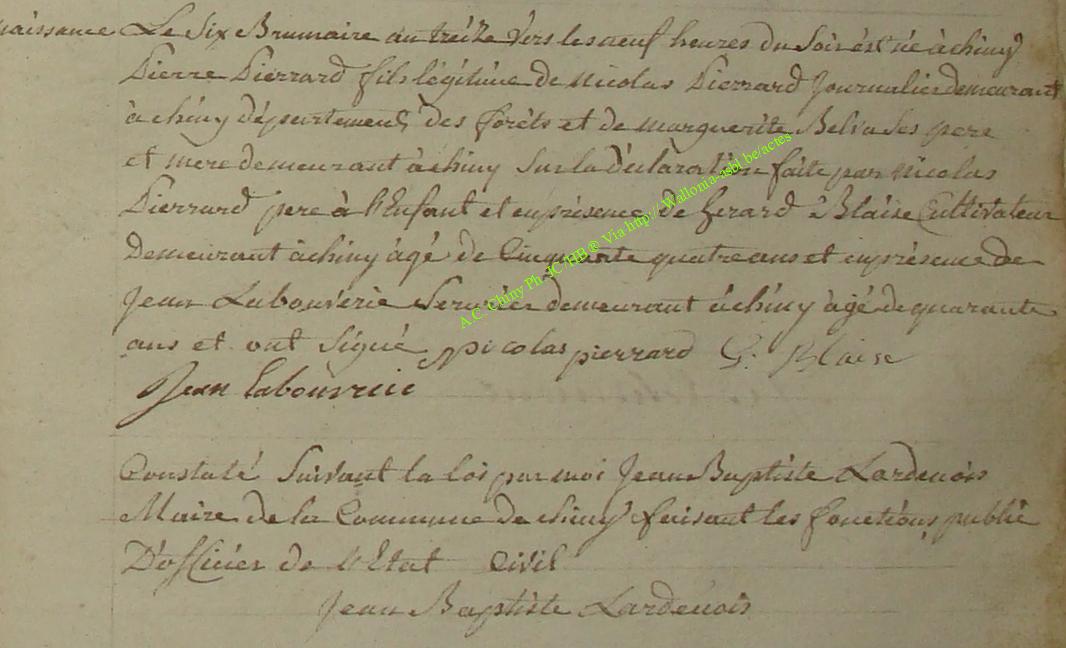 naissance Le Six Brumaire an treize vers les neuf heures du Soir est né à chiny
Pierre Pierrard fils légitime de Nicolas Pierrard Journalier demeurant
à chiny département des forêts et de marguerite Belva Ses pere
et mere demeurant à chiny Sur la Déclaration faite par Nicolas
Pierrard pere à l'Enfant et en présence de Gerard Blaise Cultivateur
Demeurant à chiny âgé de Cinquante quatre ans et en présence de
Jean Labouverie demeurant à chiny âgé de quarante
ans et ont Signé nicolas pierrard G. Blaise
Jean labouverie
Constaté Suivant la loi par moi Jean Baptiste Lardenois
Maire de la Commune de chiny faisant les fonctions public
D'officier de l'Etat Civil
Jean Baptiste Lardenois
A.C. Chiny Ph. JC/HB ® Via http://Wallonia-asbl.be/actes